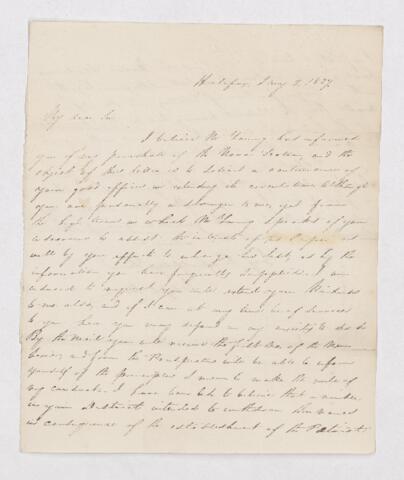 Halifax, Jany 2, 1827
My dear Sir
I believe Mr Young has informed
you of my purchase of the Nova Scotian, and the
object of this letter is to solicit a continuance of
your good offices in extending its circulation. Although
you are personally a stranger to me, yet from
the high terms in which Mr Young speaks of your
to assist the interests of his Paper as
well by your efforts to enlarge its as by the
information you have frequently supplied I am
induced to request you will extend your kindness
to me also, and if I can at any time be of service
to you here you may depend on my anxiety to do so
By the Mail you will receive the first No. of the Nova
Scotian, and from the Prospectus will be able to inform
yourself of the principles I mean to make the rule of
my conduct. I have been led to believe that a number
in your District intended to withdraw their names
in consequence of the establishment of the Patriot